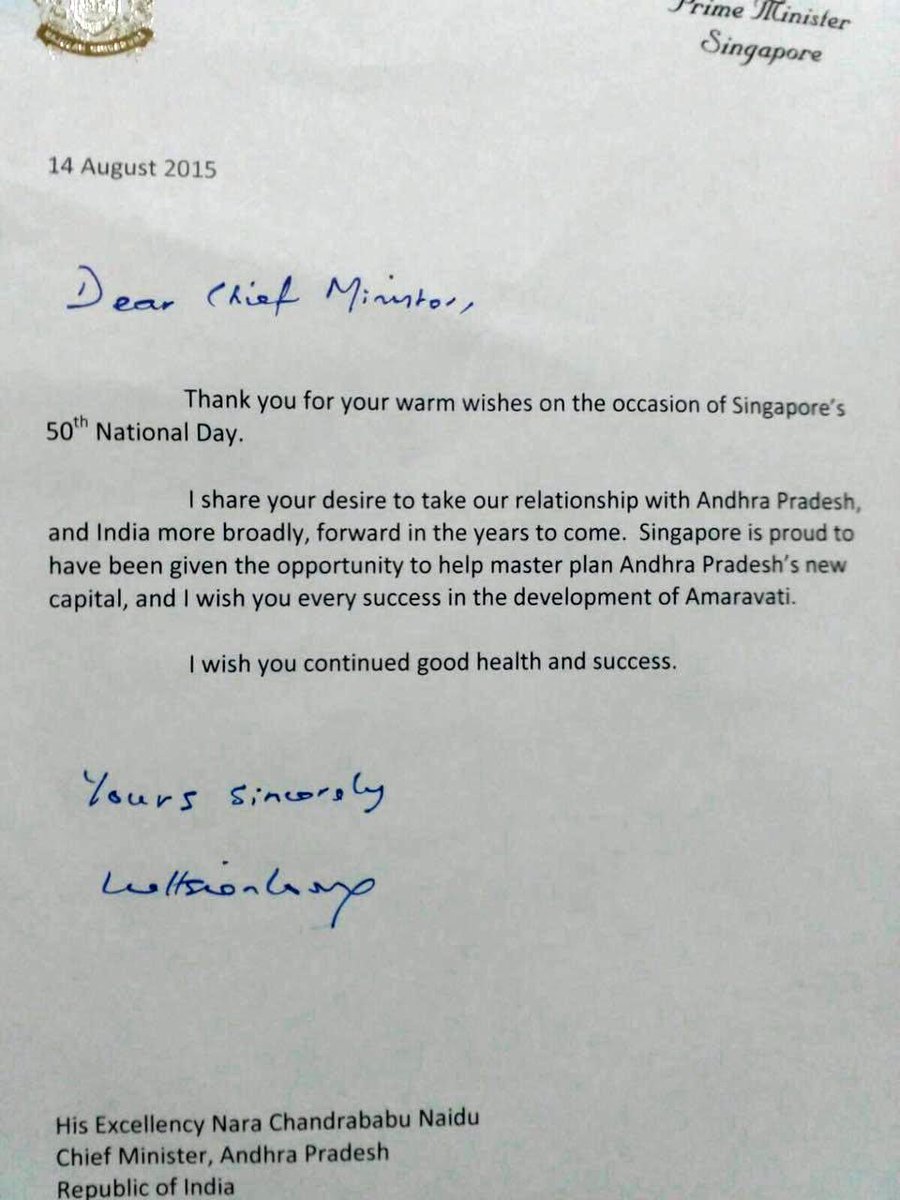 MAJULAH SINGAPURA
Prime Minister
Singapore
14 August 2015
Dear Chief Minister,
Thank you for your warm wishes on the occasion of Singapore's
50th National Day.
I share your desire to take our relationship with Andhra Pradesh,
and India more broadly, forward in the years to come. Singapore is proud to
have been given the opportunity to help master plan Andhra Pradesh's new
capital, and I wish you every success in the development of Amaravati.
I wish you continued good health and success.
Yours sincerely
Lee Hsien Loong
His Excellency Nara Chandrababu Naidu
Chief Minister, Andhra Pradesh
Republic of India